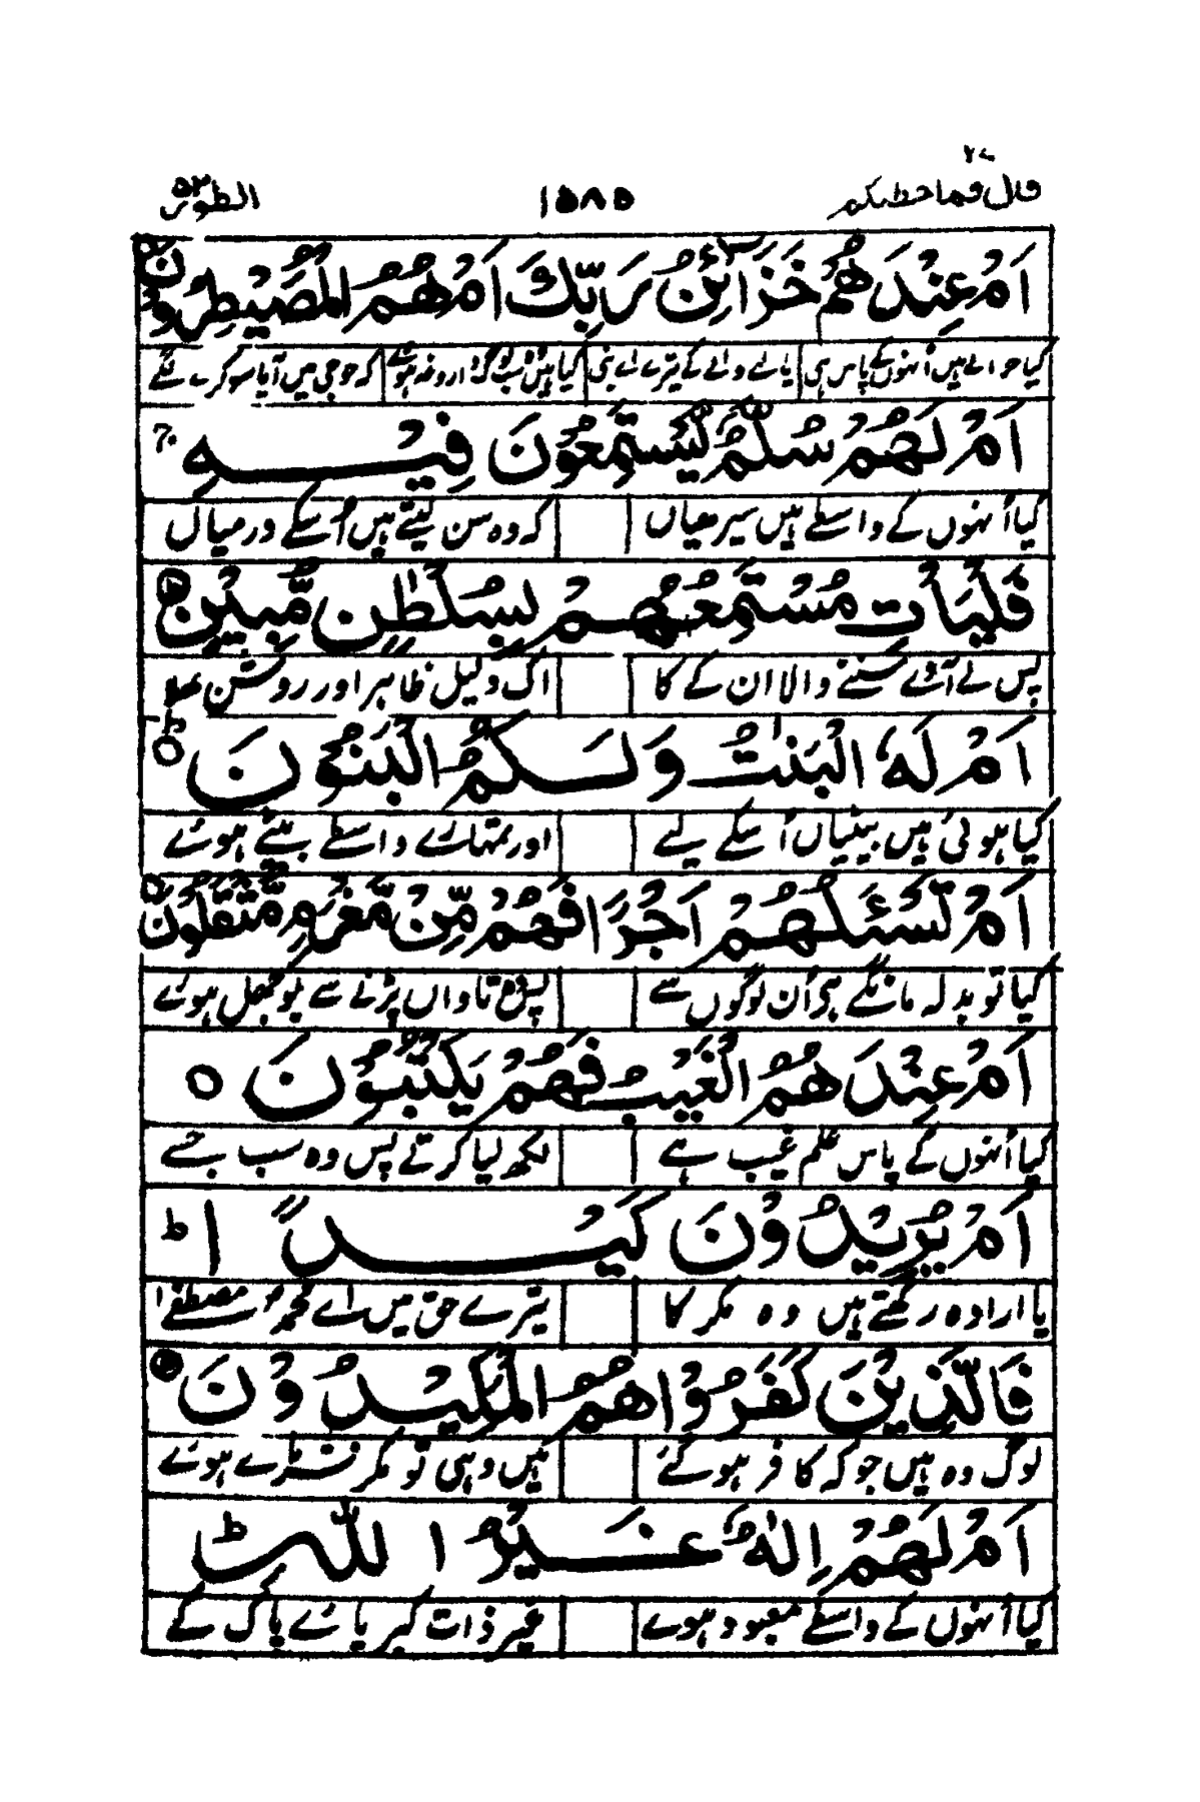 قال فما خطبکم ٢٧ ١٥٨٥ الطور ٥٢
اَمْ عِنْدَهُمْ خَزَآئِنُ رَبِّكَ اَمْ هُمُ الْمُصَۜيْطِرُوْنَ
کیا حوالے ہیں انہوں کے پاس ہی
اَمْ لَهُمْ سُلَّمٌ يَّسْتَمِعُوْنَ فِيْهِ
کیا اُنہوں کے واسطے ہیں سیڑھیاں کہ وہ سن لیتے ہیں اُسکے درمیاں
فَلْيَاْتِ مُسْتَمِعُهُمْ بِسُلْطٰنٍ مُّبِيْنٍ
پس لے آئے سننے والا ان کے کا اک دلیل ظاہر اور روشن بھلا
اَمْ لَهُ الْبَنٰتُ وَلَكُمُ الْبَنُوْنَ ط
کیا ہوئی ہیں بیٹیاں اُسکے لیے اور تمہارے واسطے بیٹے ہوئے
اَمْ تَسْئَلُهُمْ اَجْرًا فَهُمْ مِّنْ مَّغْرَمٍ مُّثْقَلُوْنَ
کیا تو بدلہ مانگے ہے اُن لوگوں سے پس تاواں پڑنے سے بوجھل ہوئے
اَمْ عِنْدَهُمُ الْغَيْبُ فَهُمْ يَكْتُبُوْنَ ○
کیا اُنہوں کے پاس علم غیب ہے لکھ لیا کرتے پس وہ سب جسے
اَمْ يُرِيْدُوْنَ كَيْدًا ط
یا ارادہ رکھتے ہیں وہ مکر کا تیرے حق میں اے محمد مصطفےٰ
فَالَّذِيْنَ كَفَرُوْا هُمُ الْمَكِيْدُوْنَ
لوگ وہ ہیں جو کہ کافر ہوگئے ہیں وہی تو مکر ہوئے
اَمْ لَهُمْ اِلٰهٌ غَيْرُ اللّٰهِ ط
کیا اُنہوں کے واسطے معبود ہوے غیر ذات پاک کے